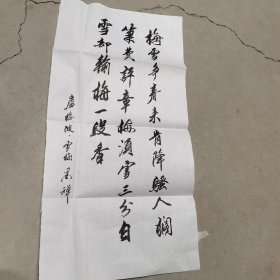 梅雪争春未肯降骚人搁
笔费评章梅须雪三分白
雪却输梅一段香
卢梅坡雪梅